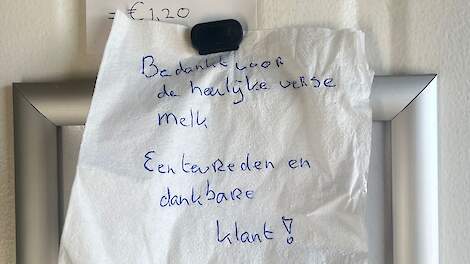 = €1,20
Bedankt voor
de heerlijke verse
melk
Een tevreden en
dankbare
klant!